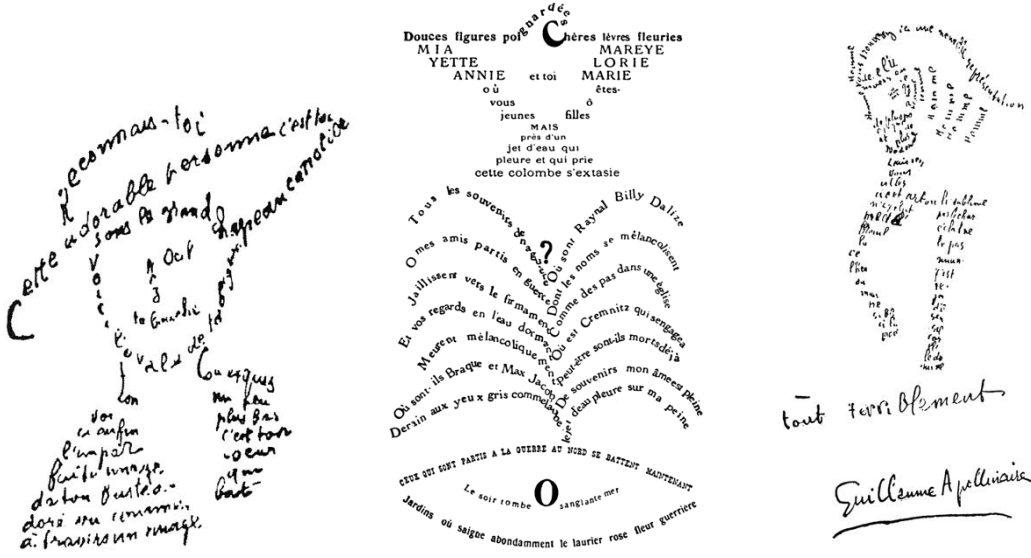 Reconnais-toi
Cette adorable personne c'est toi
sous le grand chapeau canotier
Oeil
Nez
la bouche
Voici l'ovale de ta figure
Ton
Cou exquis
Voi
ci enfin
l'impar
faite image
de ton buste a
doré vu comme
à travers un nuage
un peu
plus bas
c'est ton
coeur
qui
bat
Douces figures poignardées Chères lèvres fleuries
MIA MAREYE
YETTE LORIE
ANNIE et toi MARIE
où êtes-
vous ô
jeunes filles
MAIS
près d'un
jet d'eau qui
pleure et qui prie
cette colombe s'extasie
Tous les souvenirs de naguère
O mes amis partis en guerre
Jaillissent vers le firmament
Et vos regards en l'eau dormant
Meurent mélancoliquement
Où sont-ils Braque et Max Jacob
Derain aux yeux gris comme l'aube
?
Où sont Raynal Billy Dalize
Dont les noms se mélancolisent
Comme des pas dans une église
Où est Cremnitz qui s'engagea
Peut-être sont-ils morts déjà
De souvenirs mon âme est pleine
Le jet d'eau pleure sur ma peine
CEUX QUI SONT PARTIS A LA GUERRE AU NORD SE BATTENT MAINTENANT
Le soir tombe O sanglante mer
Jardins où saigne abondamment le laurier rose fleur guerrière
Homme vous trouverez ici une nouvelle représentation
tout terriblement
Guillaume Apollinaire